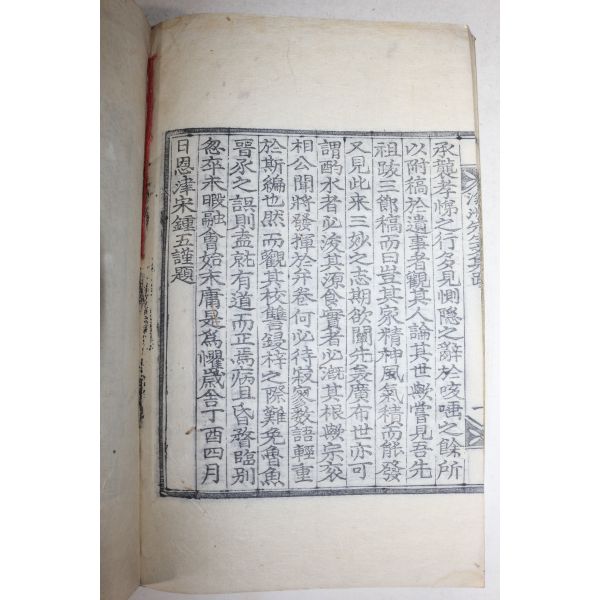 承襲孝悌之行多見惻隱之辭於咳唾之餘所
以附稿於遺事者觀其人論其世歟嘗見吾先
祖踐三郎稿而曰豈其家精神風氣積而能發
又見此來三妙之志期欲闡先美廣布世亦可
謂酌水者必浚其源食實者必漑其根歟宗袞
相公聞將發揮於弁卷何必待寂寥數語輕重
於斯編也然而觀其校讐鋟梓之際難免魯魚
晉承之誤則盍就有道而正焉病且昏瞀臨別
忽卒未暇融會始末庸是爲懼歲舍丁酉四月
日恩津宋鍾五謹題